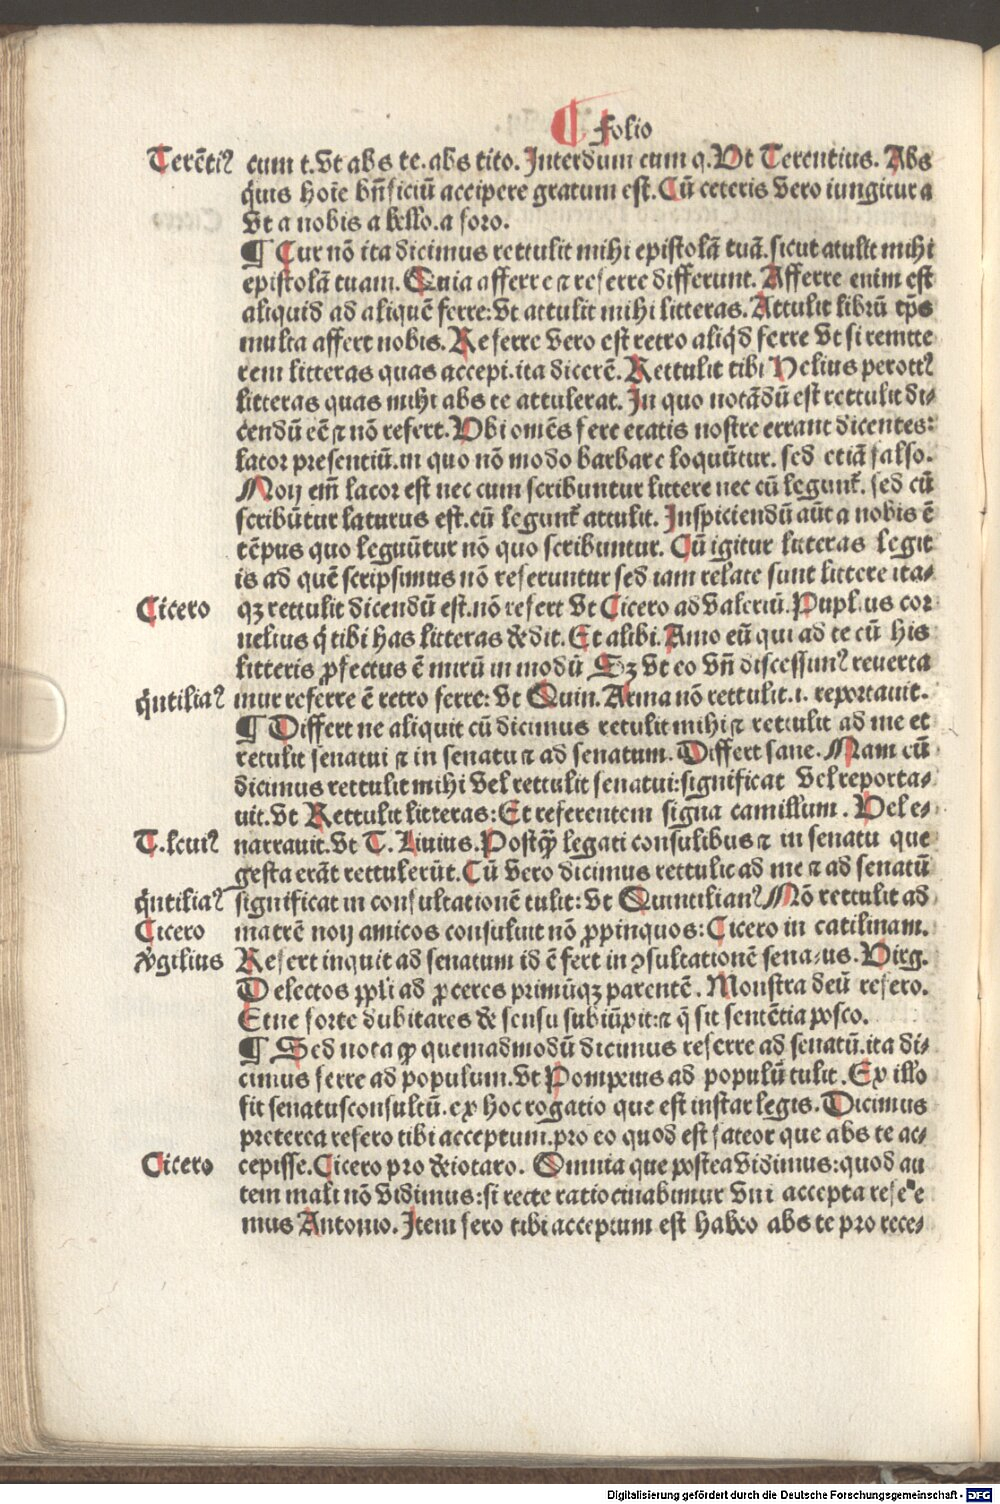 Folio
Terētiꝰ cum t. vt abs te. abs tito. Interdum cum q. Vt Terentius. Abs
q̇uis hoīe bn̄ficiū accipere gratum est. Cū ceteris vero iungitur a
vt a nobis a bello. a foro.
¶ Cur nō ita dicimus rettulit mihi epistolā tuā. sicut atulit mihi
epistolā tuam. Quia afferre ⁊ referre differunt. Afferre enim est
aliquid ad aliquē ferre: vt attulit mihi litteras. Attulit librū tp̄s
multa affert nobis. Referre vero est retro aliq̇d ferre vt si remitte
rem litteras quas accepi. ita dicerē. Rettulit tibi Nelius perottꝰ
litteras quas mihi abs te attulerat. In quo notādū est rettulit di⸗
cendū eē ⁊ nō refert. Vbi omēs fere etatis nostre errant dicentes:
lator presentiū. in quo nō modo barbare loquūtur. sed etiā falso.
Noɳ em̄ lator est nec cum scribuntur littere nec cū legunt᷑. sed cū
scribūtur laturus est. cū legunt᷑ attulit. Inspiciendū aūt a nobis ē
tēpus quo leguūtur nō quo scribuntur. Cū igitur litteras legit
is ad quē scripsimus nō referuntur sed iam relate sunt littere ita⸗
Cicero qꝫ rettulit dicendū est. nō refert vt Cicero ad valeriū. Puplius cor
nelius q̇ tibi has litteras dedit. Et alibi. Amo eū qui ad te cū his
litteris ꝓfectus ē mirū in modū Sꝫ vt eo vn̄ discessimꝰ reuerta
q̇ntiliaꝰ mur referre ē retro ferre: vt Quin. Arma nō rettulit .i. reportauit.
¶ Differt ne aliquit cū dicimus retulit mihi ⁊ rettulit ad me et
retulit senatui ⁊ in senatu ⁊ ad senatum. Differt sane. Nam cū
dicimus rettulit mihi vel rettulit senatui: significat vel reporta⸗
uit. vt Rettulit litteras: Et referentem signa camillum. Vel e⸗
T. leuiꝰ narrauit. vt T. Liuius. Postꝙ̄ legati consulibus ⁊ in senatu que
gesta erāt rettulerūt. Cū vero dicimus rettulit ad me ⁊ ad senatū
q̇ntiliaꝰ significat in consultationē tulit: vt Quintilianꝰ Nō rettulit ad
Cicero matrē noɳ amicos consuluit nō ꝓpinquos: Cicero in catilinam.
v̇gilius Refert inquit ad senatum id ē fert in ꝯsultationē senatus. Virg.
Delectos pp̄li ad ꝓceres primūqꝫ parentē. Monstra deū refero.
Et ne forte dubitares de sensu subiūxit: ⁊ q̄ sit sentētia posco.
¶ Sed nota ꝙ quemadmodū dicimus referre ad senatū. ita di⸗
cimus ferre ad populum. vt Pompeius ad populū tulit. Ex illo
fit senatusconsultū. ex hoc rogatio que est instar legis. Dicimus
preterea refero tibi acceptum. pro eo quod est fateor que abs te ac⸗
Cicero cepisse. Cicero pro deiotaro. Omnia que postea vidimus: quod au
tem mali nō vidimus: si recte ratiocinabimur vni accepta refe e
mus Antonio. Item fero tibi acceptum est habeo abs te pro rece⸗
Digitalisierung gefördert durch die Deutsche Forschungsgemeinschaft - DFG